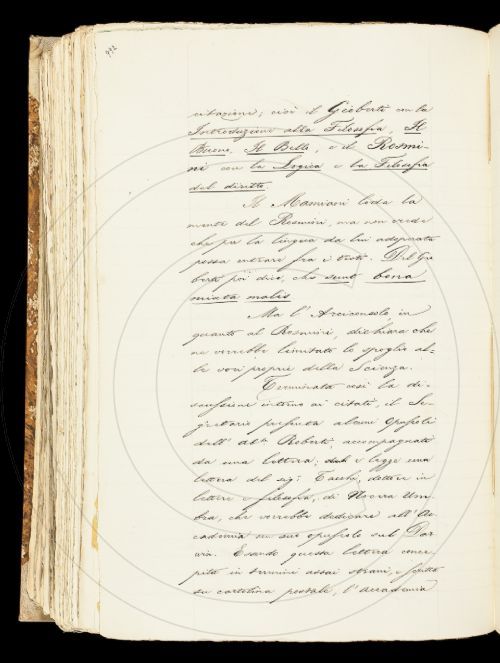 492
citazione; cioè il Gioberti con la
Introduzione alla Filosofia, Il
Buono, Il Bello, e il Rosmi-
ni con la Logica e la Filosofia
del diritto.
Il Mamiani loda la
mente del Rosmini, ma non crede
che per la lingua da lui adoperata
possa entrare fra i testi. Del Gio
berti poi dice, che sunt bona
mixta malis
Ma l'Arciconsolo, in
quanto al Rosmini, dichiara che
ne verrebbe limitato lo spoglio al-
le voci proprie della Scienza.
Terminata così la di-
scussione intorno ai citati, il Se-
gretario presenta alcuni opuscoli
dell' Roberti, accompagnati
da una lettera; e legge una
lettera del sig. Tacchi, dottore in
lettere e filosofia, di Nocera Um-
bra, che vorrebbe dedicare all'Ac-
cademia un suo opuscolo sul Dar
win. Essendo questa lettera conce-
pita in termini assai strani, e scritta
su cartolina postale, l'accademia